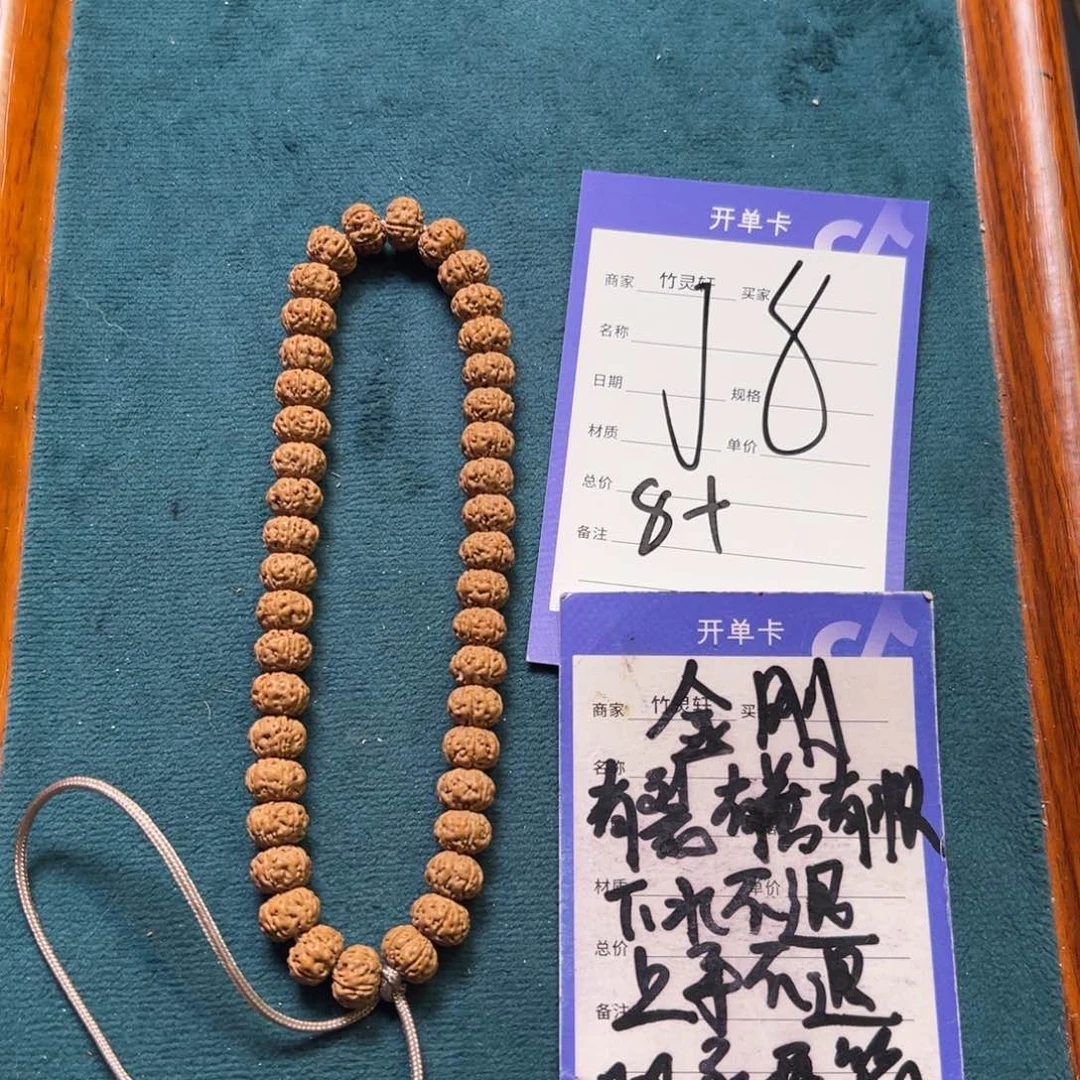 开单卡
商家 竹灵轩 买家
J 8
名称
日期 规格
材质 单价
总价
8+
备注
开单卡
商家 竹灵轩 买
金刚
名称
有裂有养有服
材质 单价
下水不退
总价
上手不退
备注